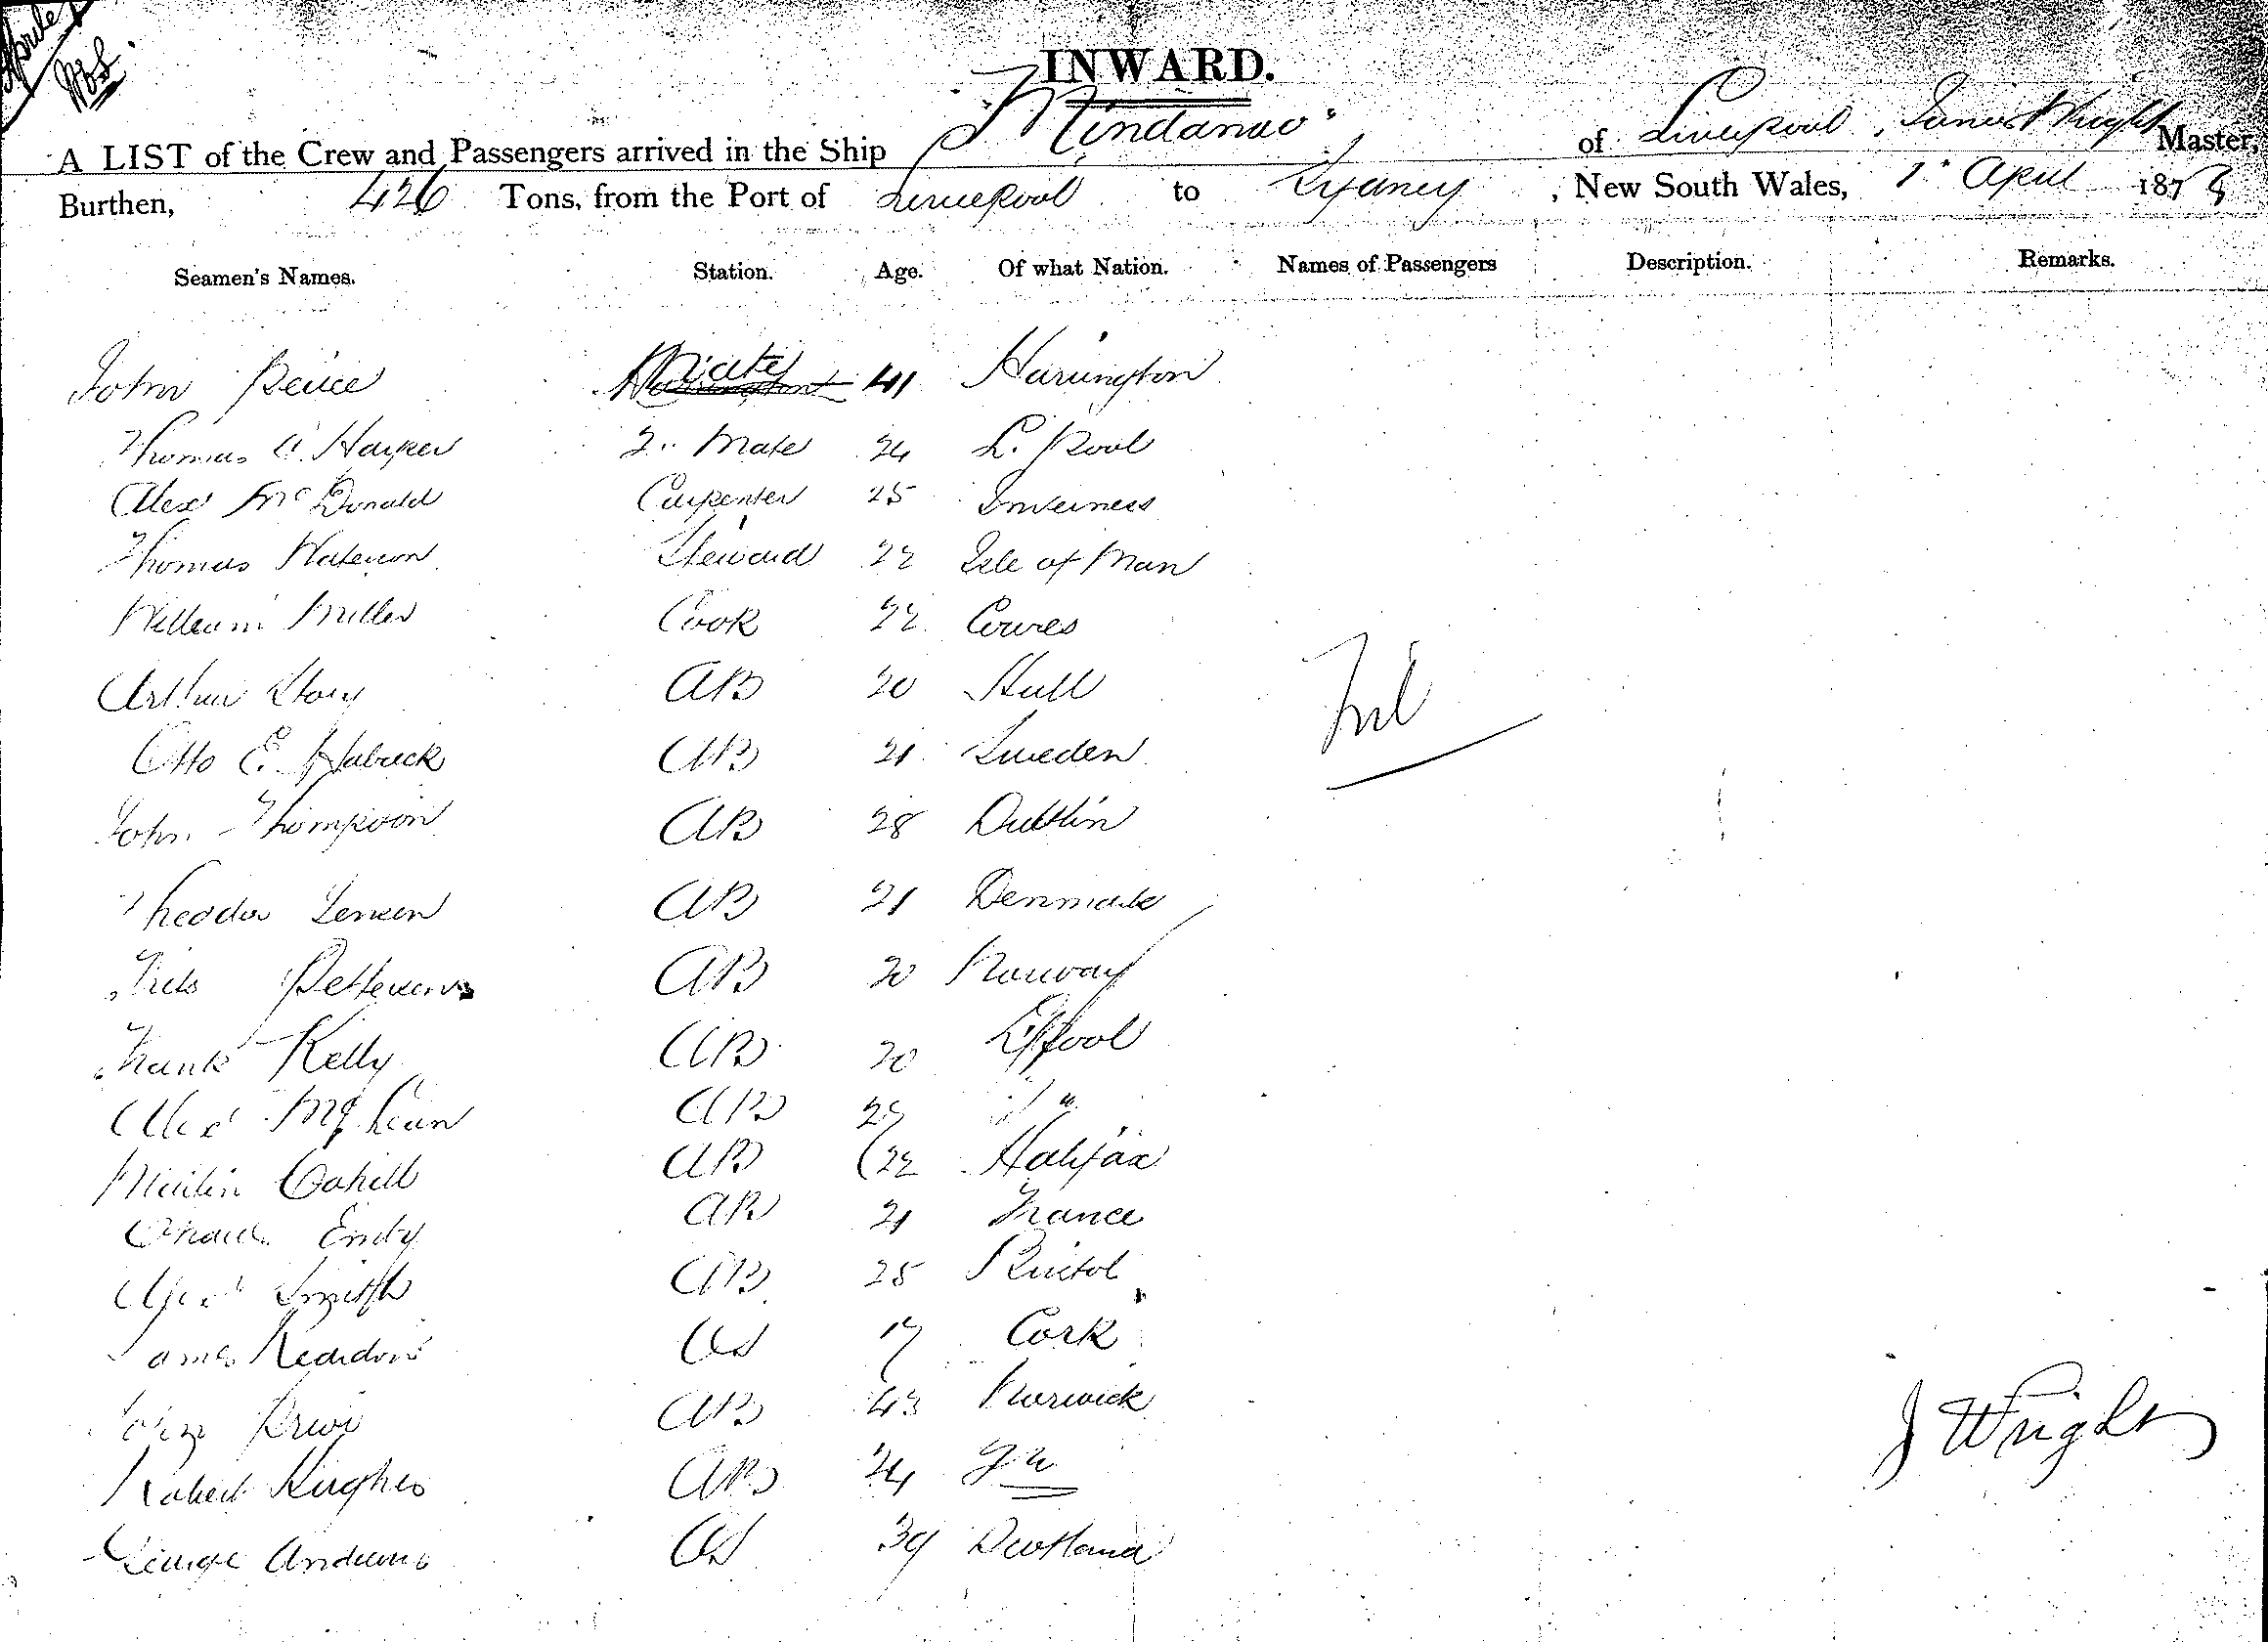 INWARD.
A LIST of the Crew and Passengers arrived in the Ship "Mindanao", of Liverpool, James Wright Master,
Burthen, 426 Tons, from the Port of Liverpool to Sydney, New South Wales, 1st April 187
Seamen's Names. Station. Age. Of what Nation. Names of Passengers Description. Remarks.
John Peirce Mate 41 Harrington
Thomas A. Harper 2nd Mate 24 L. Pool
Alex McDonald Carpenter 25 Inverness
Thomas Waterson Steward 22 Isle of Man
William Miller Cook 22 Cowes
Arthur Story AB 20 Hull
Nil
Otto E. AB 21 Sweden
John Thompson AB 28 Dublin
Theodor Jensen AB 21 Denmark
Niels Pettersen AB 20 Norway
Frank Kelly AB 20 L'pool
Alex McLean AB 25 "
Martin Cahill AB 22 Halifax
Emily AB 21 France
Alex Smith AB 25 Bristol
James Reardon OS 17 Cork
John AB 43 Warwick
J Wright
Robert Hughes AB 24
George Andrews OS 39 Scotland